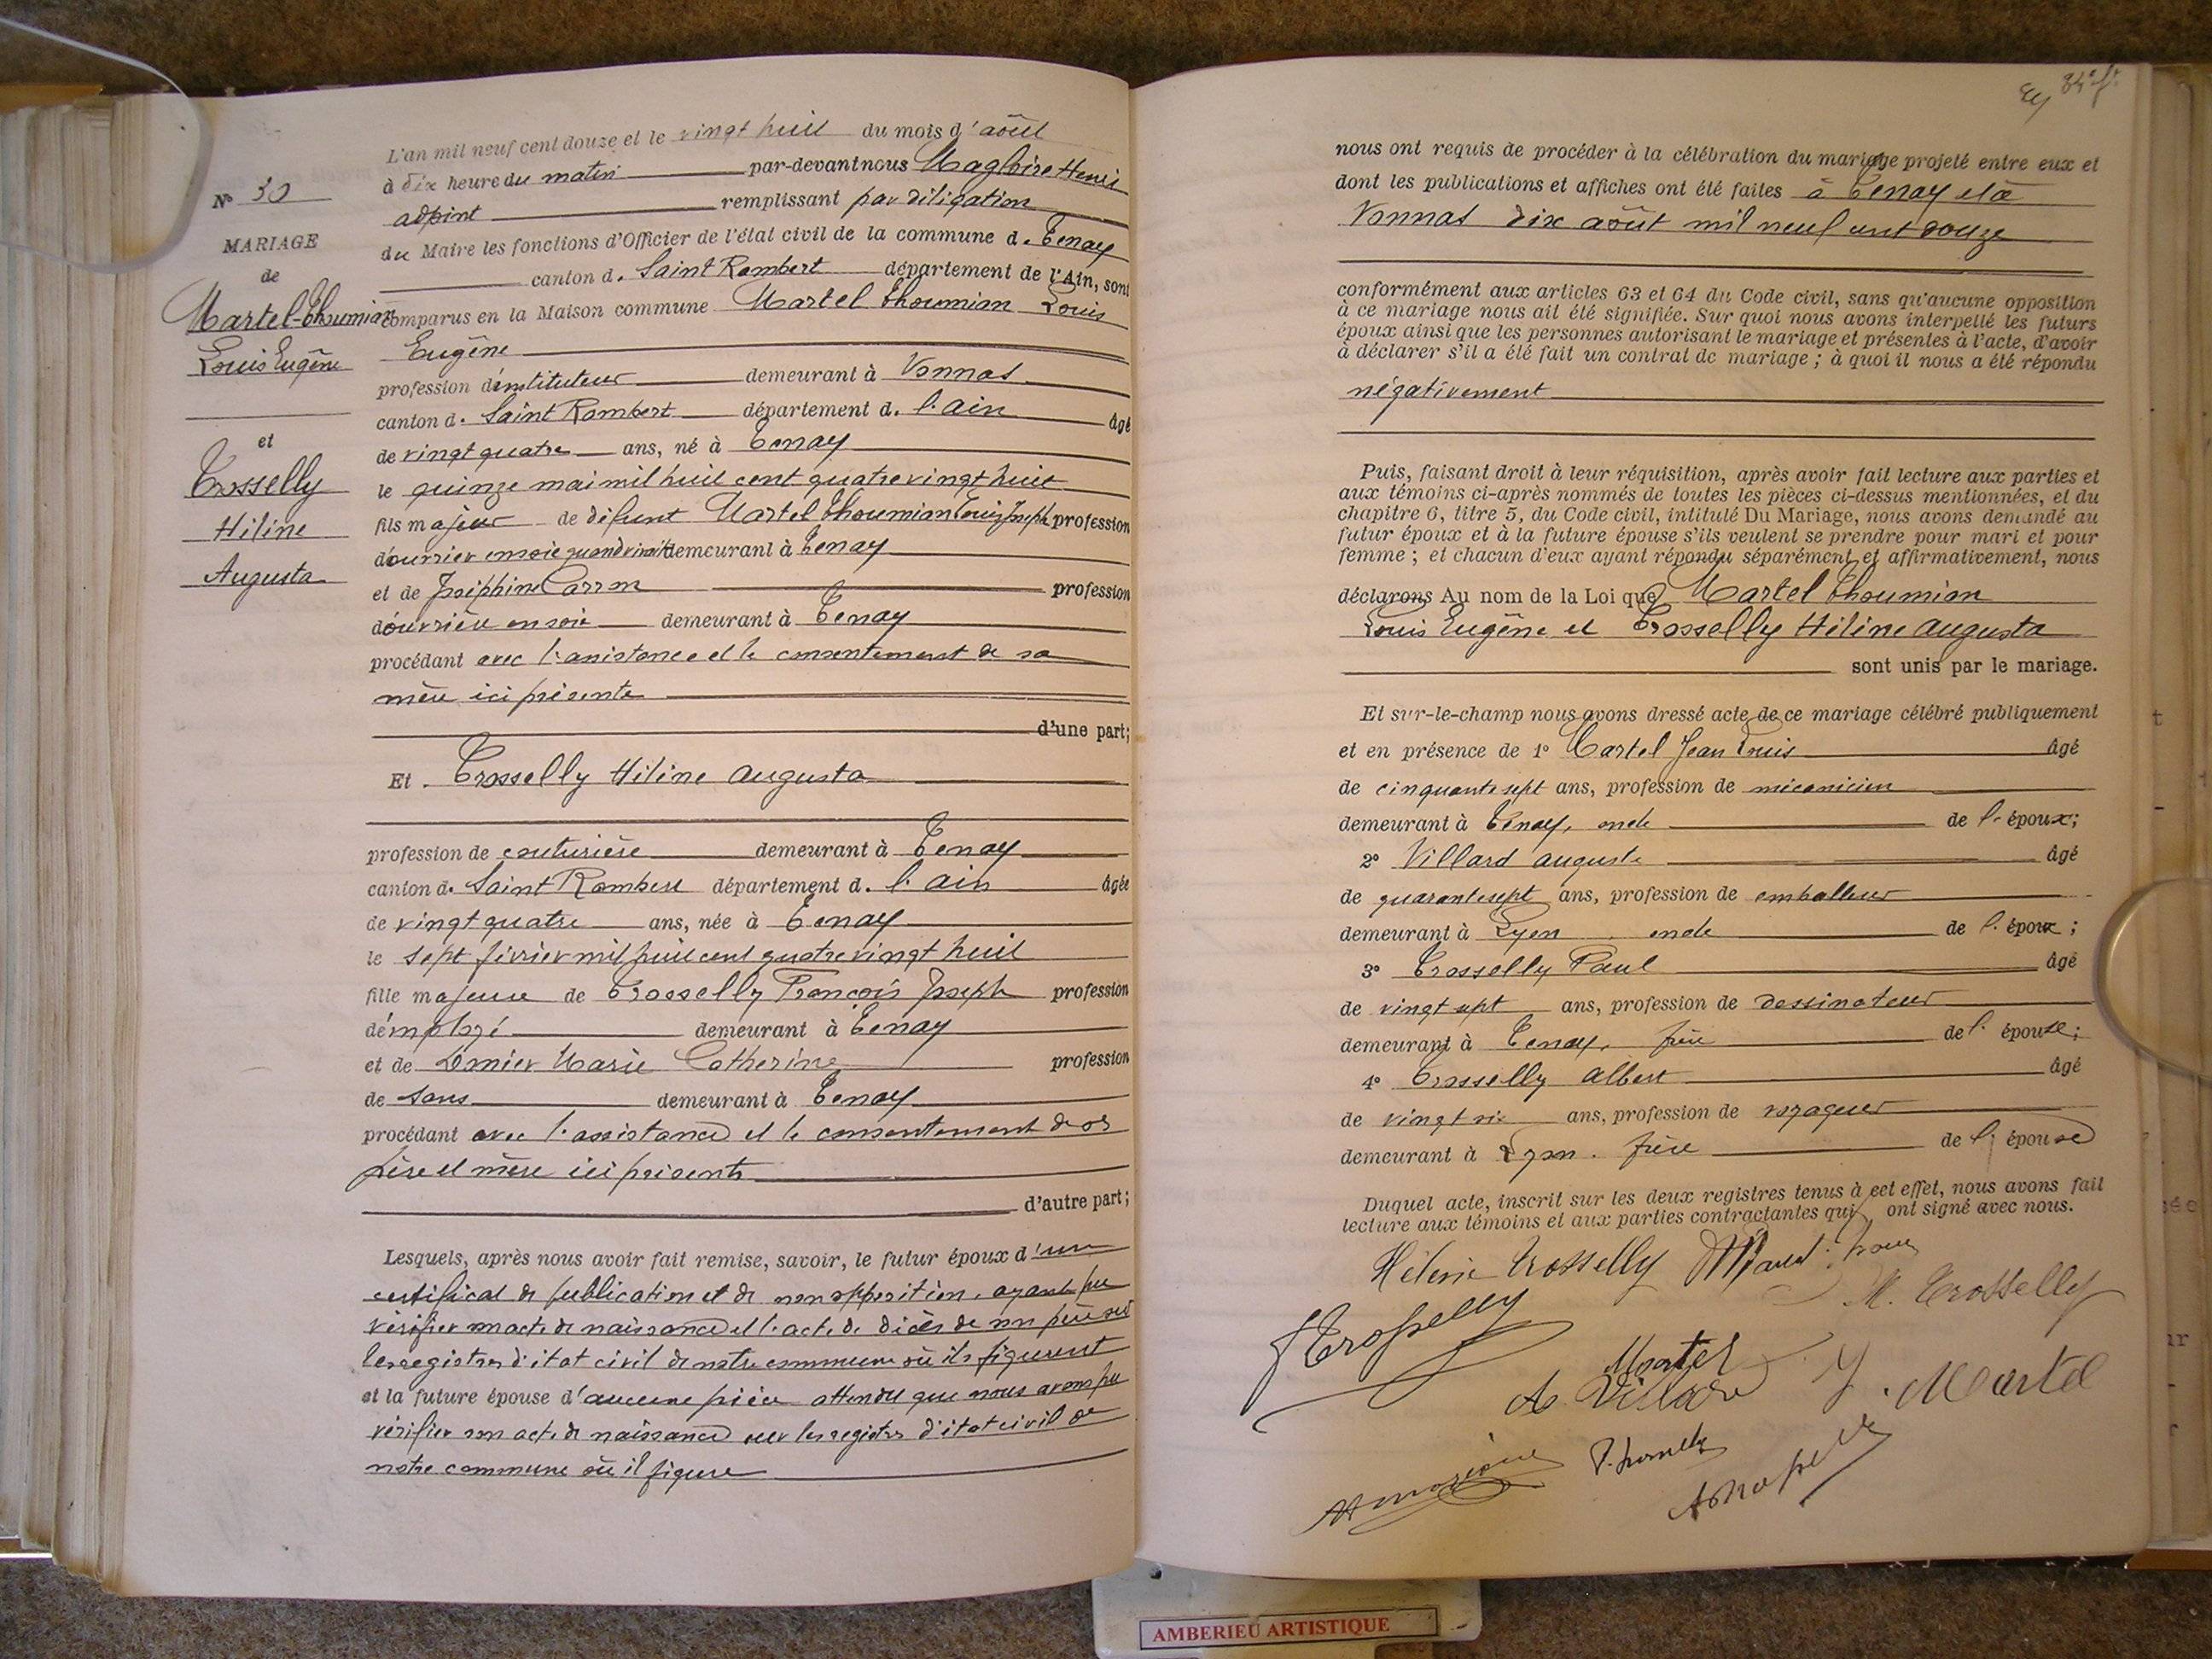 L'an mil neuf cent douze et le vingt huit du mois d'août
à dix heure du matin par-devant nous Magloire Henri
adjoint remplissant par déligation
du Maire les fonctions d'Officier de l'état civil de la commune d. Tenay
canton d. Saint Rambert département de l'Ain, sont
comparus en la Maison commune Martel Thoumian Louis
Eugène
profession d'instituteur demeurant à Vonnas
canton d. Saint Rambert département d. l'ain âgé
de vingt quatre ans, né à Tenay
le quinze mai mil huit cent quatre vingt huit
fils majeur de défunt Martel Thoumian Louis Joseph profession
d'ouvrier en soie quand vivait demeurant à Tenay
et de Joséphine Carron profession
d'ouvrière en soie demeurant à Tenay
procédant avec l'assistance et le consentement de sa
mère ici présente
d'une part;
Et Trosselly Hélène Augusta
profession de couturière demeurant à Tenay
canton d. Saint Rambert département d. l'ain âgée
de vingt quatre ans, née à Tenay
le sept février mil huit cent quatre vingt huit
fille majeure de Trosselly François Joseph profession
d'employé demeurant à Tenay
et de Marie Catherine profession
de sans demeurant à Tenay
procédant avec l'assistance et le consentement de ses
père et mère ici présents
d'autre part;
Lesquels, après nous avoir fait remise, savoir, le futur époux d'un
certificat de publication et de non opposition, ayant pu
vérifier son acte de naissance et l'acte de décès de son père sur
les registres d'état civil de notre commune où ils figurent
et la future épouse d'aucune pièce attendu que nous avons pu
vérifier son acte de naissance sur les registres d'état civil de
notre commune où il figure
N° 30
MARIAGE
de
Martel-Thoumian
Louis Eugène
et
Trosselly
Hélène
Augusta
84e ft
nous ont requis de procéder à la célébration du mariage projeté entre eux et
dont les publications et affiches ont été faites à Tenay et à
Vonnas dix août mil neuf cent douze
conformément aux articles 63 et 64 du Code civil, sans qu'aucune opposition
à ce mariage nous ait été signifiée. Sur quoi nous avons interpellé les futurs
époux ainsi que les personnes autorisant le mariage et présentes à l'acte, d'avoir
à déclarer s'il a été fait un contrat de mariage ; à quoi il nous a été répondu
négativement
Puis, faisant droit à leur réquisition, après avoir fait lecture aux parties et
aux témoins ci-après nommés de toutes les pièces ci-dessus mentionnées, et du
chapitre 6, titre 5, du Code civil, intitulé Du Mariage, nous avons demandé au
futur époux et à la future épouse s'ils veulent se prendre pour mari et pour
femme ; et chacun d'eux ayant répondu séparément et affirmativement, nous
déclarons Au nom de la Loi que Martel Thoumian
Louis Eugène et Trosselly Hélène Augusta
sont unis par le mariage.
Et sur-le-champ nous avons dressé acte de ce mariage célébré publiquement
et en présence de 1° Martel Jean Louis âgé
de cinquante sept ans, profession de mécanicien
demeurant à Tenay, oncle de l'époux;
2° Villard auguste âgé
de quarante sept ans, profession de emballeur
demeurant à Lyon oncle de l'époux ;
3° Trosselly Paul âgé
de vingt sept ans, profession de dessinateur
demeurant à Tenay, frère de l'épouse;
4° Trosselly Albert âgé
de vingt six ans, profession de voyageur
demeurant à Lyon. frère de l'épouse
Duquel acte, inscrit sur les deux registres tenus à cet effet, nous avons fait
lecture aux témoins et aux parties contractantes qui ont signé avec nous.
Hélène Trosselly
M. Trosselly
Martel
A Villard J. Martel
AMBERIEU ARTISTIQUE